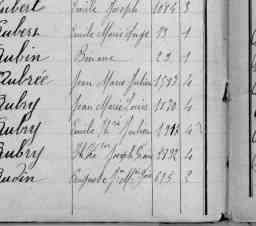 Aubert Emile Joseph 1084 3
Aubert Emile Marie Ange 13 1
Aubin 23 1
Aubrée Jean Marie Julien 1733 4
Aubry Jean Marie Louis 1820 4
Aubry Emile Julien 4
Aubry Joseph 4
Audin Auguste 695 2